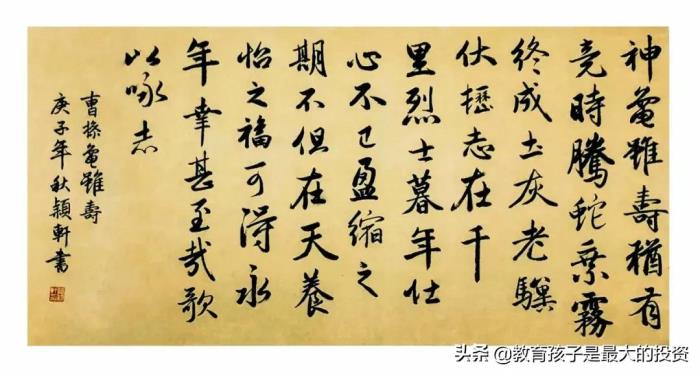 神龜雖壽猶有
竟時騰蛇乘霧
終成土灰老驥
伏櫪志在千
里烈士暮年壮
心不已盈縮之
期不但在天養
怡之福可得永
年幸甚至哉歌
以咏志
曹操龜雖壽
庚子年秋穎軒書
头条 @教育孩子是最大的投资